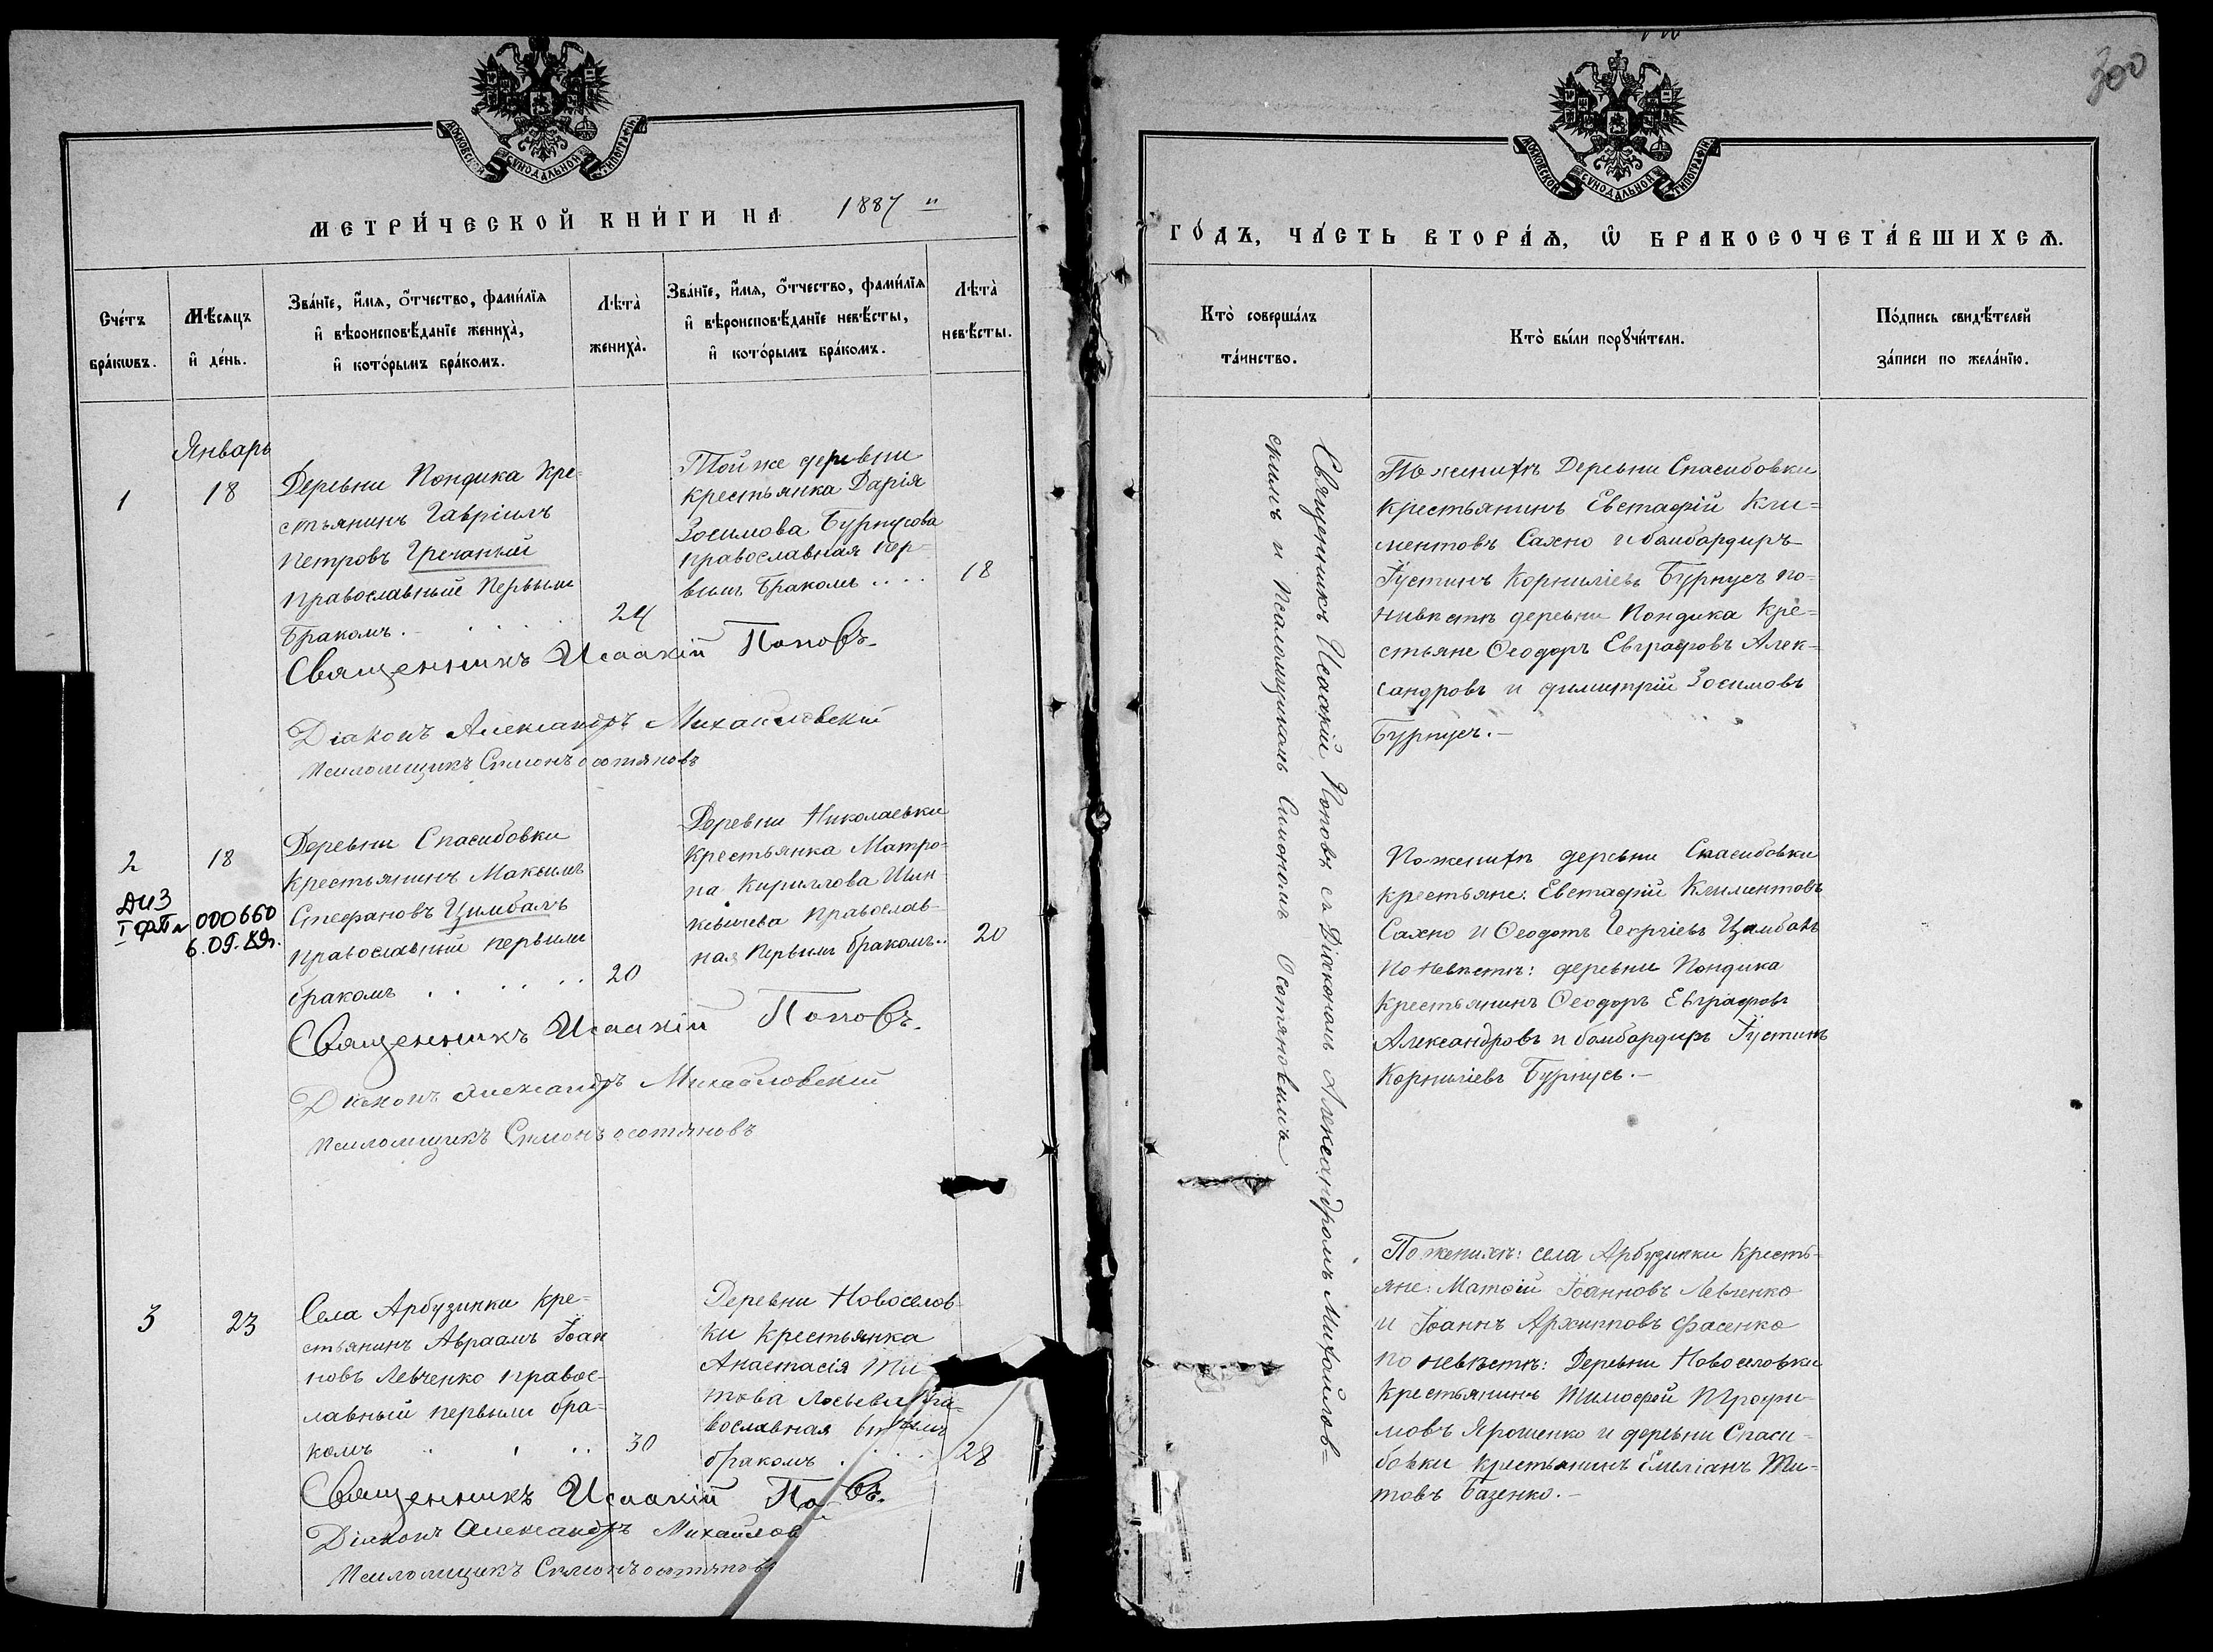 МОСКОВСКОЙ СѴНОДАЛЬНОЙ ТИПОГРАФІИ
МЕТРИ́ЧЕСКОЙ КНИ́ГИ НА 1887 й
Сче́тъ бра́кѡвъ.
Мѣ́сяцъ и҆ де́нь.
Зва́нїе, и҆́мѧ, ѻ҆́тчество, фами́лїѧ
и҆ вѣроисповѣ́данїе жениха̀,
и҆ кото́рымъ бра́комъ.
Лѣта̀ жениха̀.
Зва́нїе, и҆́мѧ, ѻ҆́тчество, фами́лїѧ
и҆ вѣроисповѣ́данїе невѣ́сты,
и҆ кото́рымъ бра́комъ.
Лѣта̀ невѣ́сты.
Январь
1
18
Деревни Пондика Кре-
стьянинъ Гавріилъ
Петровъ Гречаный
Православный Первымъ
Бракомъ.
24
Той же деревни
крестьянка Дарія
Зосимова Бурнусова
православная пер-
вымъ Бракомъ ....
18
Священникъ Исаакій Поповъ.
Діаконъ Александръ Михайловскій
Псаломщикъ Симонъ Осотяновъ
2
18
ДИЗ
000660
6.09.89г.
Деревни Спасибовки
Крестьянинъ Максимъ
Стефановъ Цимбалъ
православный первымъ
бракомъ . . . . .
20
Деревни Николаевки
Крестьянка Матро-
на Кириллова Шин
православ-
ная Первымъ бракомъ..
20
Священникъ Исаакій Поповъ.
Діаконъ Александръ Михайловскій
Псаломщикъ Симонъ Осотяновъ
3
23
Села Арбузинки Кре-
стьянинъ Авраамъ Іоан
новъ Левченко правос-
лавный первымъ бра-
комъ
30
Деревни Новоселов-
ки крестьянка
Анастасія Ти
това Лосьева Пра-
вославная вторымъ
бракомъ .
28
Священникъ Исаакій По въ.
Діаконъ Александръ Михайлов
Псаломщикъ Симонъ Осотяновъ
300
МОСКОВСКОЙ СѴНОДАЛЬНОЙ ТИПОГРАФІИ
ГО́ДЪ, ЧА́СТЬ ВТОРА́Ѧ, Ѡ҆ БРАКОСОЧЕТА́ВШИХСѦ.
Кто̀ соверша́лъ та́инство.
Кто̀ бы́ли порꙋчи́тели.
По́дпись свидѣ́телей за́писи по жела́нїю.
Священникъ Исаакій Поповъ съ Діакономъ Александромъ Михайлов-
скимъ и Псаломщикомъ Симономъ Осотяновымъ
По женихѣ Деревни Спасибовки
Крестьянинъ Евстафій Кли-
ментовъ Сахно и бомбардиръ
Іустинъ Корниліевъ Бурнусъ по-
невѣстѣ деревни Пондика Кре-
стьяне Ѳеодоръ Евграфовъ Алек-
сандровъ и димитрій Зосимовъ
Бурнусъ.-
По женихѣ деревни Спасибовки
крестьяне: Евстафій Климентовъ
Сахно и Ѳеодотъ Георгіевъ Цимбалъ
По невѣстѣ: деревни Пондика
Крестьянинъ Ѳеодоръ Евграфовъ
Александровъ и бомбардиръ Іустинъ
Корниліевъ Бурнусъ.-
По женихѣ: села Арбузинки Кресть-
яне: Матѳій Іоанновъ Левченко
и Іоаннъ Архипповъ Фасенко
по невѣстѣ: Деревни Новоселовки
Крестьянинъ Тимофей Трофи-
мовъ Ярошенко и деревни Спаси-
бовки Крестьянинъ Емеліанъ Ти-
товъ Базенко.-